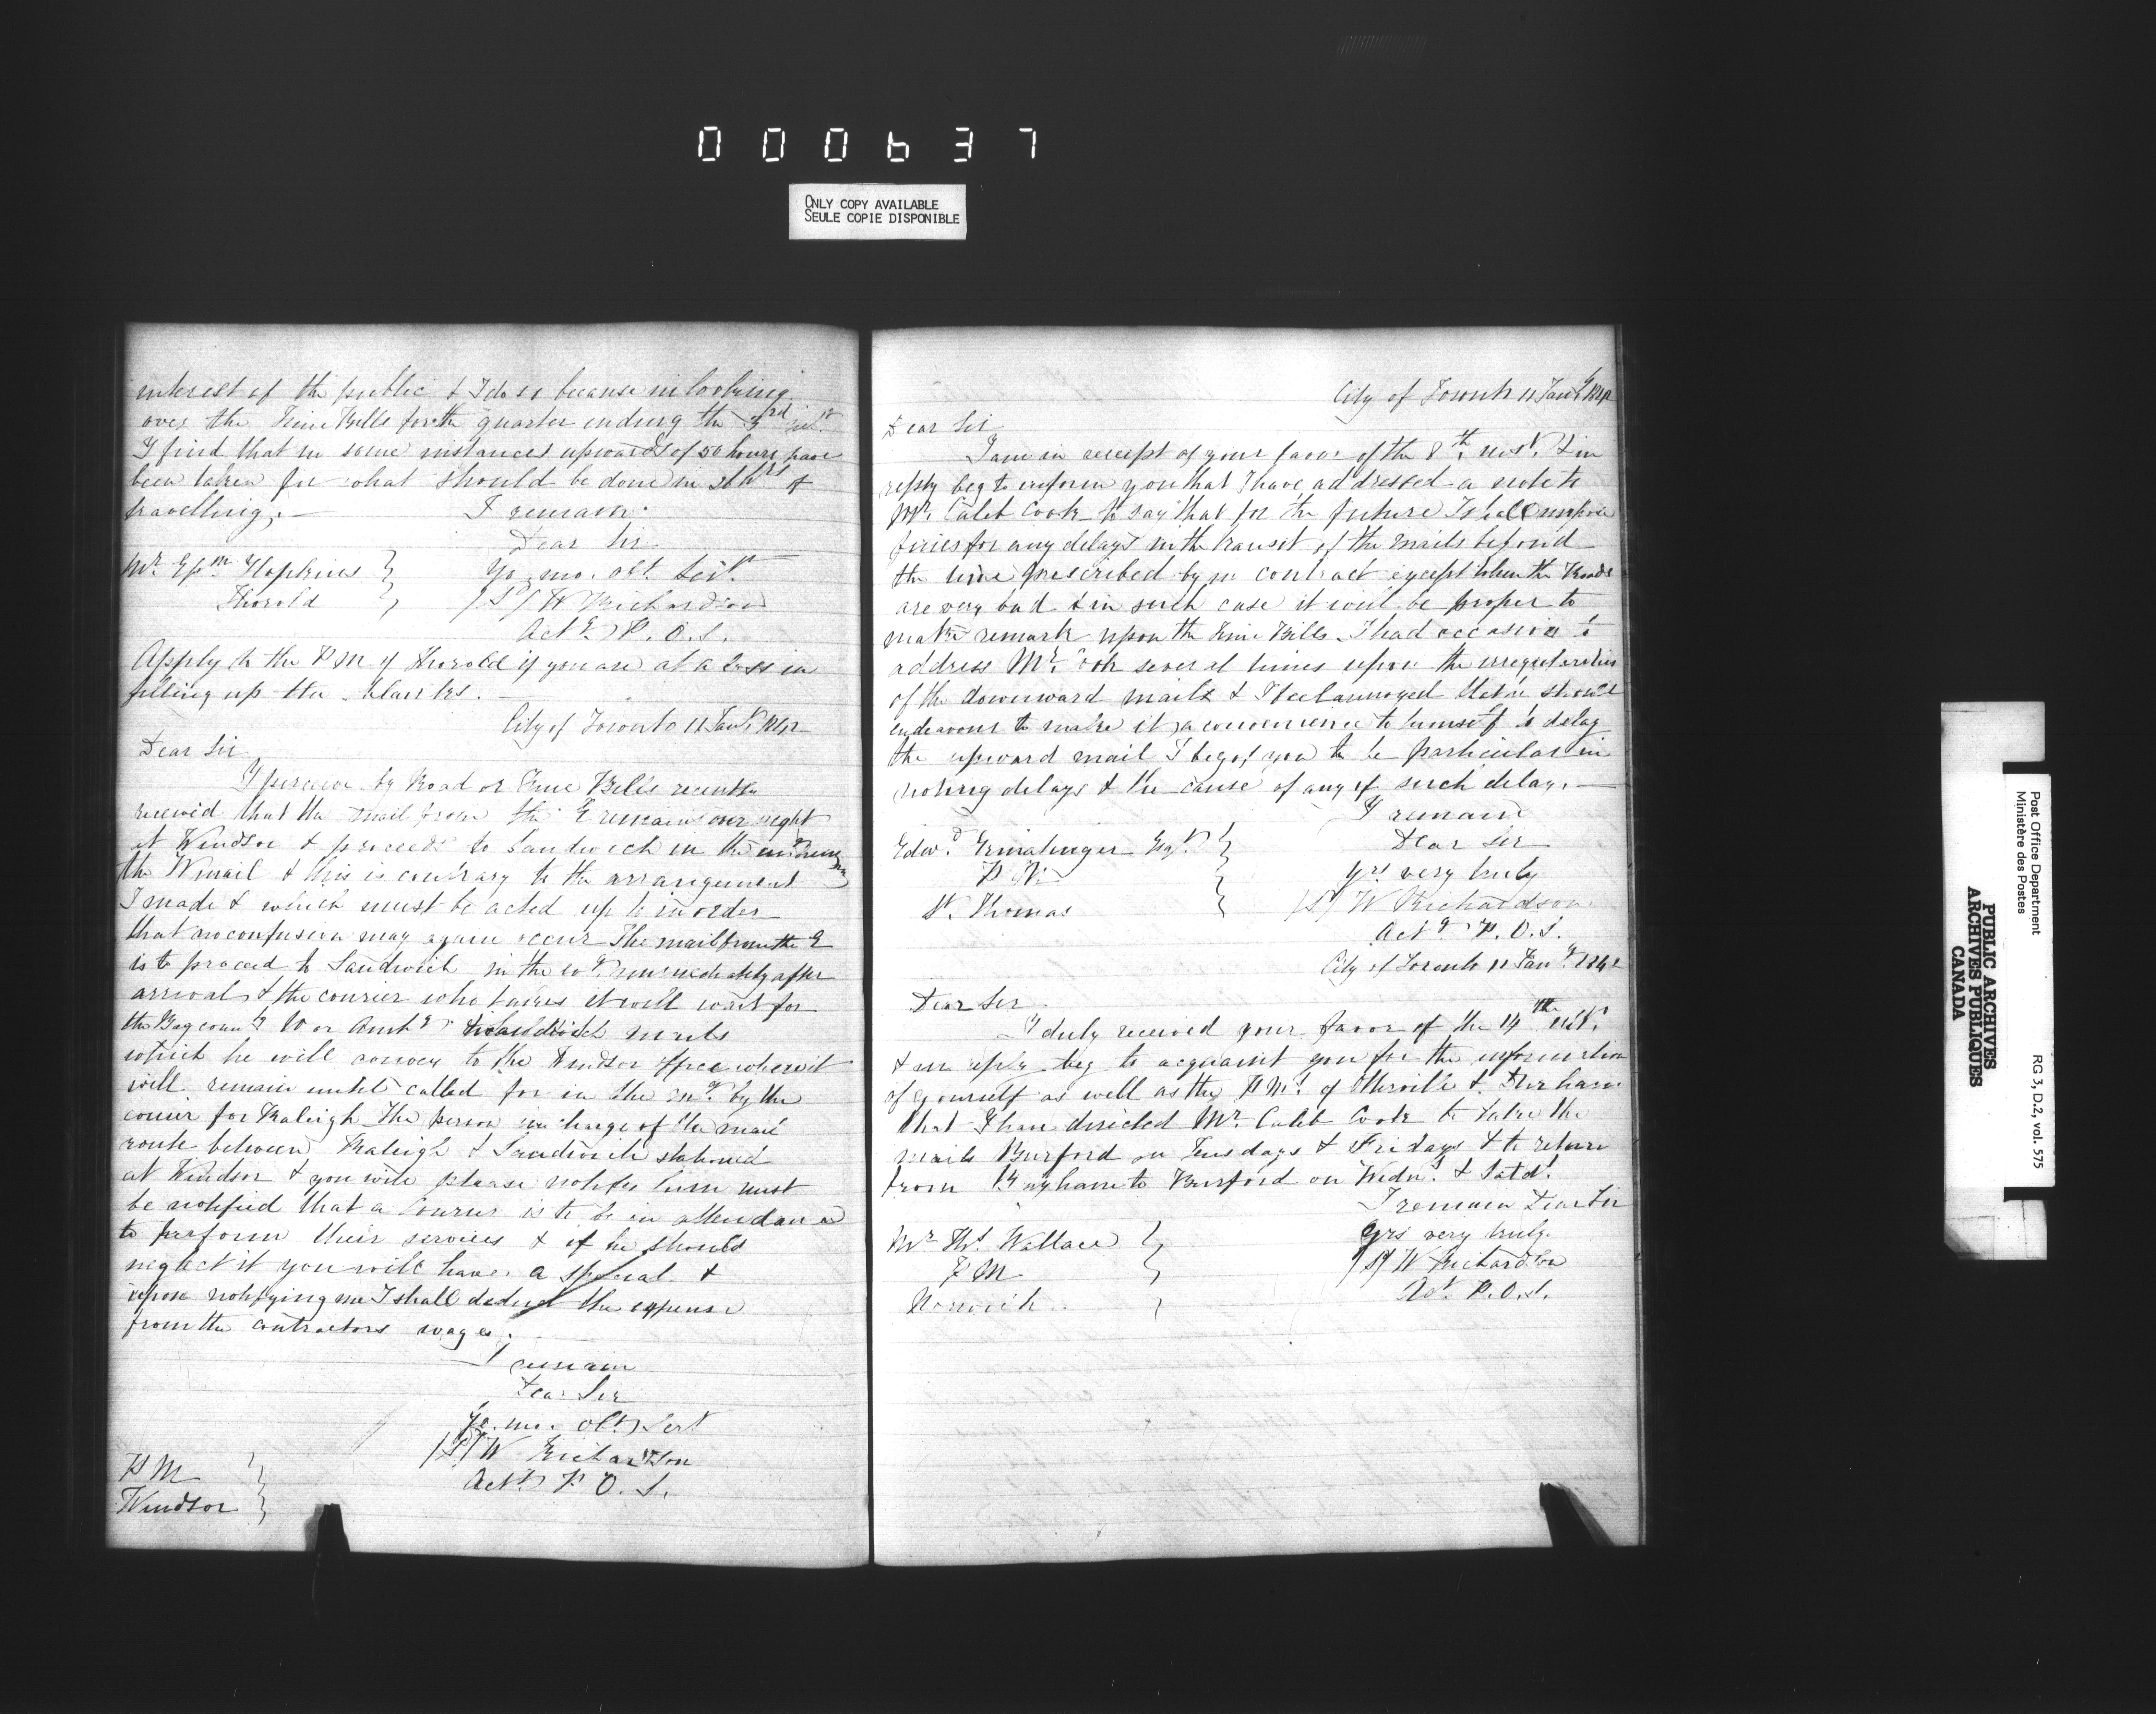 000637
ONLY COPY AVAILABLE
SEULE COPIE DISPONIBLE
interest of the public & I do so because in looking
over the Time Bills for the quarter ending the 3rd inst
I find that in some instances upwards of 50 hours have
been taken for what should be done in hrs of
travelling. — I remain
Dear Sir
Mr. Hopkins } Yo. mo. obt. Servt.
Thorold } /S/ W Richardson
Actg P. O. S.
Apply to the P M of Thorold if you are at a loss in
filling up the blanks. —
City of Toronto 11 Jany 1842
Dear Sir
I perceive by Road or Time Bills recently
received that the mail from the E remains over night
at Windsor & proceeds to Sandwich in the
the W mail & this is contrary to the arrangement
I made & which must be acted up to in order
that no confusion may again occur The mail from the E
is to proceed to Sandwich in the immediately after
arrival & the courier who takes it will wait for
the Bag W or Amhg Sandwich mails
which he will convey to the Windsor office where it
will remain until called for in the by the
courier for Raleigh The person in charge of the mail
route between Raleigh & Sandwich stationed
at Windsor & you will please notify him must
be notified that a Courier is to be in attendance
to perform their services & if he should
neglect it you will have a special &
upon notifying me I shall deduct the expense
from the contractors wages.
I remain
Dear Sir
Yo. mo. obt. Sert
/S/ W Richardson
P M } Actg P O. S.
Windsor }
City of Toronto 11 Jany 1842
Dear Sir
I am in receipt of your favor of the 8th inst. & in
reply beg to inform you that I have addressed a note to
Mr. Caleb Cook to say that for the future I shall impose
fines for any delays in the transit of the mails beyond
the time prescribed by contract except when the Roads
are very bad & in such case it will be proper to
make remark upon the Time Bills. I had occasion to
address Mr. Cook several times upon the irregularities
of the downward mails & I feel annoyed that he should
endeavour to make it a convenience to himself to delay
the upward mail I beg of you to be particular in
noting delays & the cause of any of such delay. —
I remain
Edwd. Ermatinger Esqr. } Dear Sir
P M } yrs very truly
St. Thomas } /S/ W Richardson
Actg P. O. S.
City of Toronto 11 Jany 1842
Dear Sir
I duly received your favor of the 14th ult.
& in reply beg to acquaint you for the information
of yourself as well as the P Ms of Otterville & Dereham
that I have directed Mr. Caleb Cook to take the
mails Burford on Tuesdays & Fridays & to return
from Bayham to Burford on Wedns. & Satds.
I remain Dear Sir
Mr Thos. Wallace } Yrs very truly
P M } /S/ W Richardson
Norwich } Act. P. O. S.
Post Office Department
Ministère des Postes
RG 3, D.2, vol. 575
PUBLIC ARCHIVES
ARCHIVES PUBLIQUES
CANADA